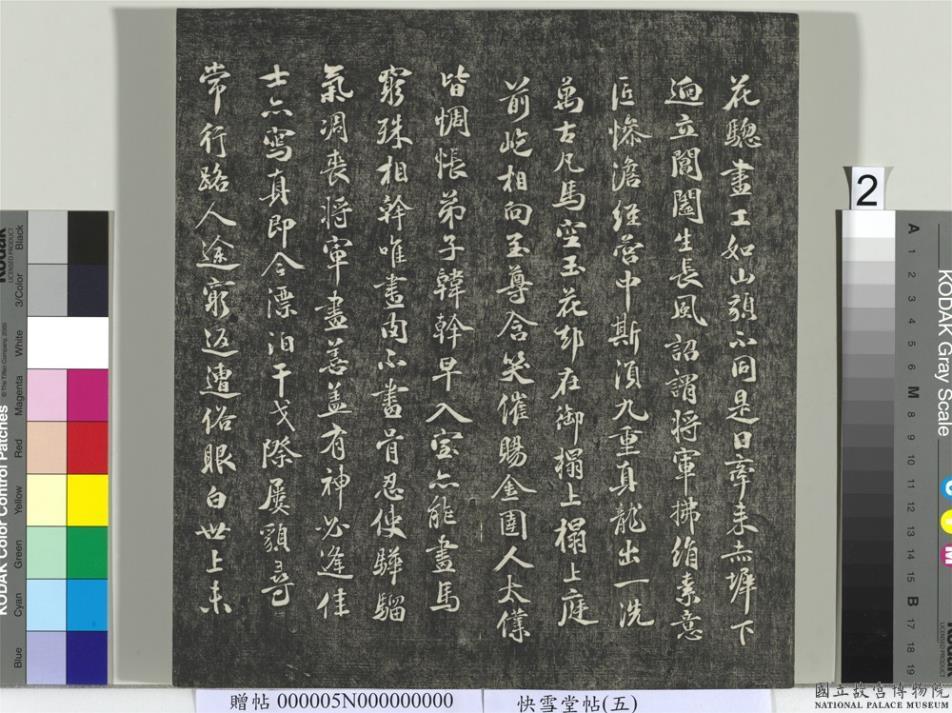 花驄畫工如山貌不同是日牽来赤墀下
迥立閶闔生長風詔謂將軍拂絹素意
匠慘澹経营中斯湏九重真龍出一洗
萬古凡馬空玉花却在御榻上榻上庭
前屹相向至尊含笑催賜金圉人太僕
皆惆悵弟子韓幹早入室亦能畫馬
窮殊相幹唯畫肉不畫骨忍使驊騮
氣凋喪將軍畫善盖有神必逢佳
士亦寫真即今漂泊干戈際屡貌尋
常行路人途窮返遭俗眼白世上未
贈帖 000005N000000000
快雪堂帖(五)
國立故宮博物院
NATIONAL PALACE MUSEUM
2
KODAK Gray Scale
A 1 2 3 4 5 6 M 8 9 10 11 12 13 14 15 B 17 18 19
KODAK Color Control Patches
Kodak
LICENSED PRODUCT
© The Tiffen Company, 2000
Blue
Cyan
Green
Yellow
Red
Magenta
White
3/Color
Black
C
Y
M